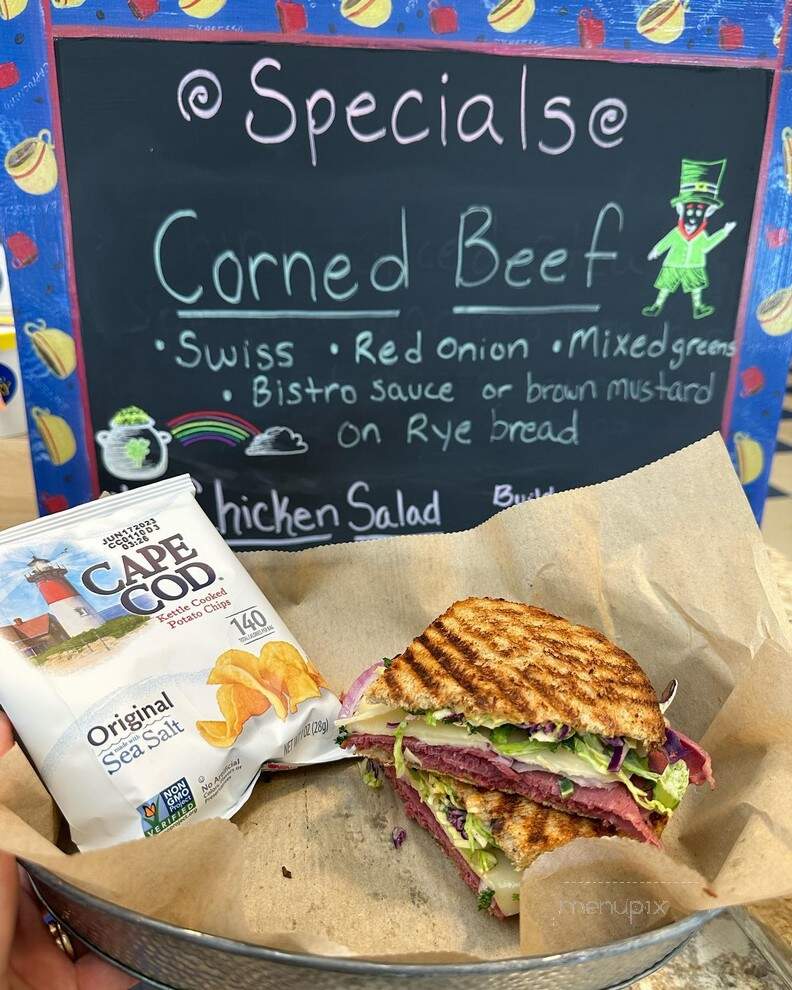 Specials
Corned Beef
• Swiss • Red Onion • Mixed greens
• Bistro sauce or brown mustard
on Rye bread
hicken Salad
JUN172023
03:26
CAPE
COD
Kettle Cooked
Potato Chips
140
Original
made with
Sea Salt
NET WT 1 OZ (28g)
NON
GMO
Project
VERIFIED
No Artificial
menupix